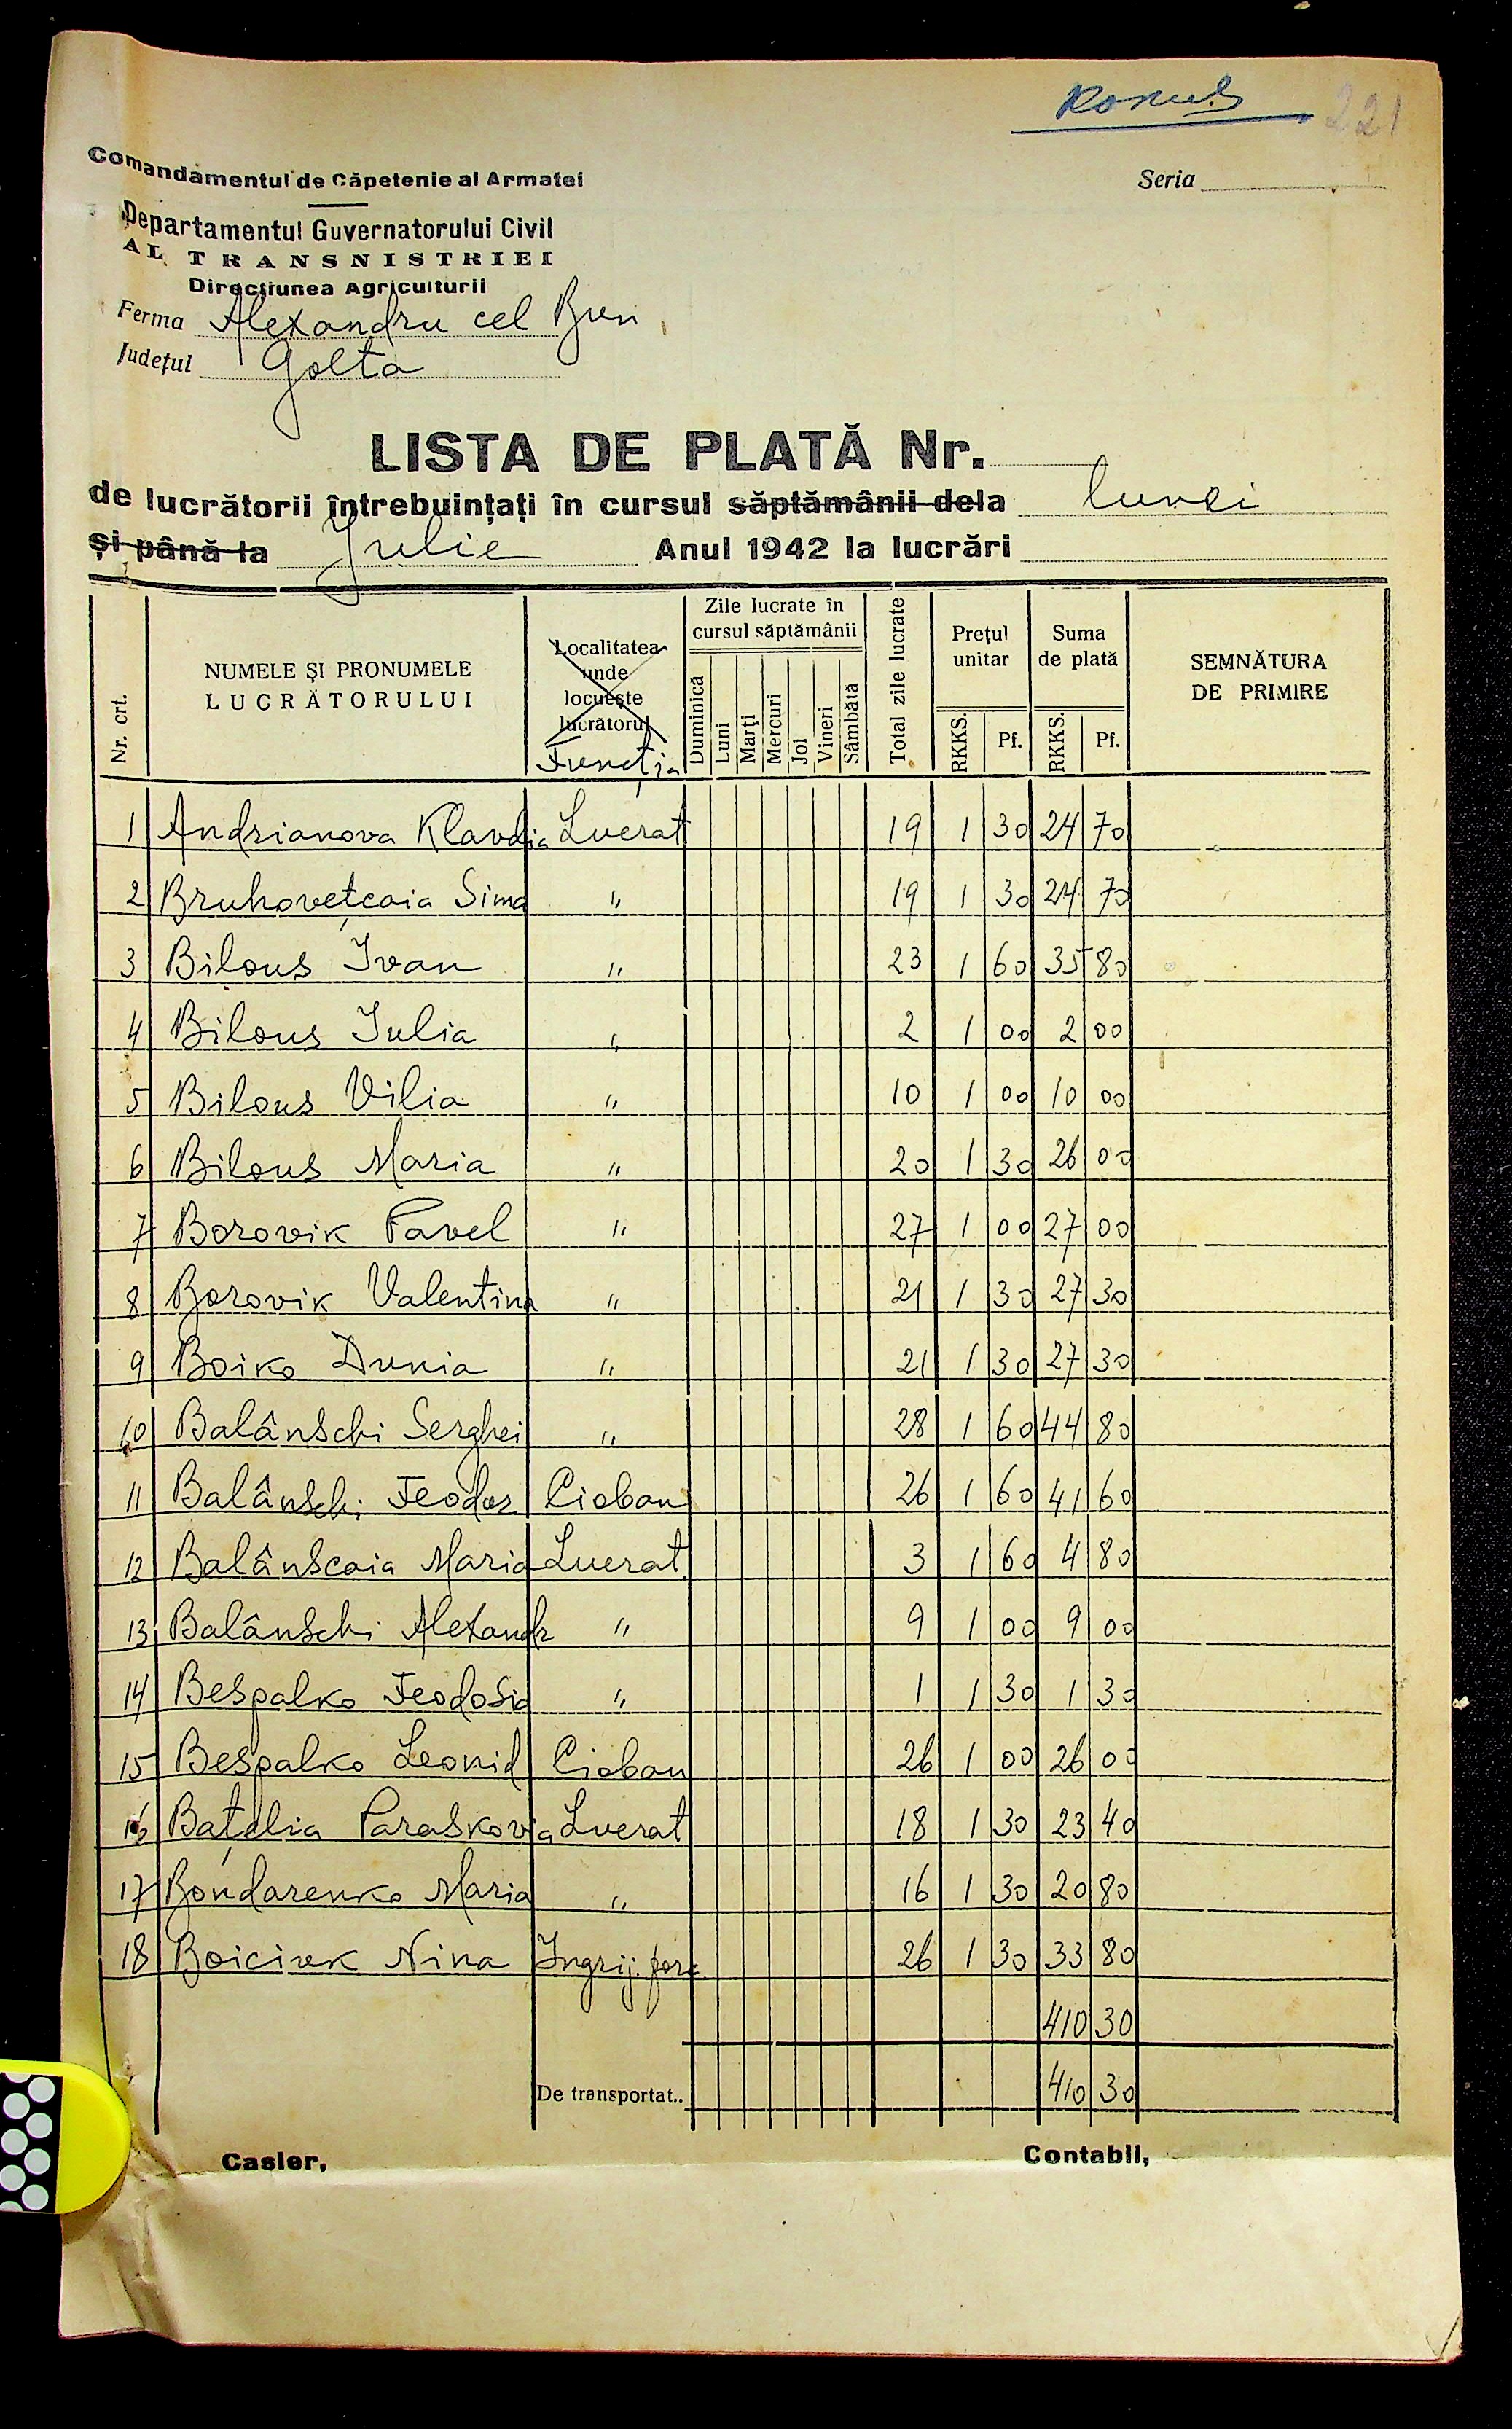 копия 221
Comandamentul de Căpetenie al Armatei
Seria
Departamentul Guvernatorului Civil
AL TRANSNISTRIEI
Direcțiunea Agriculturii
Ferma Alexandru cel Bun
Județul Golta
LISTA DE PLATĂ Nr.
de lucrătorii întrebuințați în cursul săptămânii dela lunei
și până la Julie Anul 1942 la lucrări
Nr. crt. NUMELE ȘI PRONUMELE LUCRĂTORULUI Localitatea unde locuește lucrătorul Funcția Zile lucrate în cursul săptămânii Duminică Luni Marți Mercuri Joi Vineri Sâmbătă Total zile lucrate Prețul unitar RKKS. Pf. Suma de plată RKKS. Pf. SEMNĂTURA DE PRIMIRE
1 Andrianova Klavdia Lucrat 19 1 30 24 70
2 Bruhovețcaia Sima " 19 1 30 24 70
3 Bilous Ivan " 23 1 60 35 80
4 Bilous Iulia " 2 1 00 2 00
5 Bilous Vilia " 10 1 00 10 00
6 Bilous Maria " 20 1 30 26 00
7 Borovik Pavel " 27 1 00 27 00
8 Borovik Valentina " 21 1 30 27 30
9 Boiko Dunia " 21 1 30 27 30
10 Balânschi Serghei " 28 1 60 44 80
11 Balânschi Feodor Cioban 26 1 60 41 60
12 Balânscaia Maria Lucrat. 3 1 60 4 80
13 Balânschi Alexandr " 9 1 00 9 00
14 Bespalko Feodosia " 1 1 30 1 30
15 Bespalko Leonid Cioban 26 1 00 26 00
16 Bațelia Paraskovia Lucrat 18 1 30 23 40
17 Bondarenko Maria " 16 1 30 20 80
18 Boiciuk Nina Ingrij. porc 26 1 30 33 80
410 30
De transportat.. 410 30
Casier, Contabil,